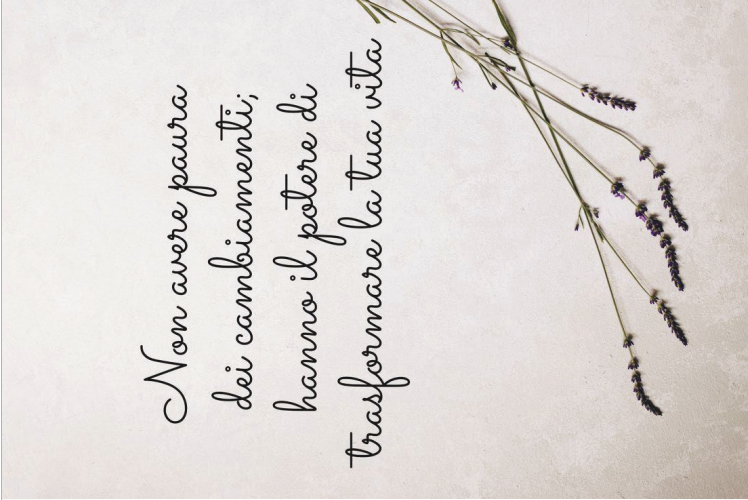 Non avere paura
dei cambiamenti;
hanno il potere di
trasformare la tua vita